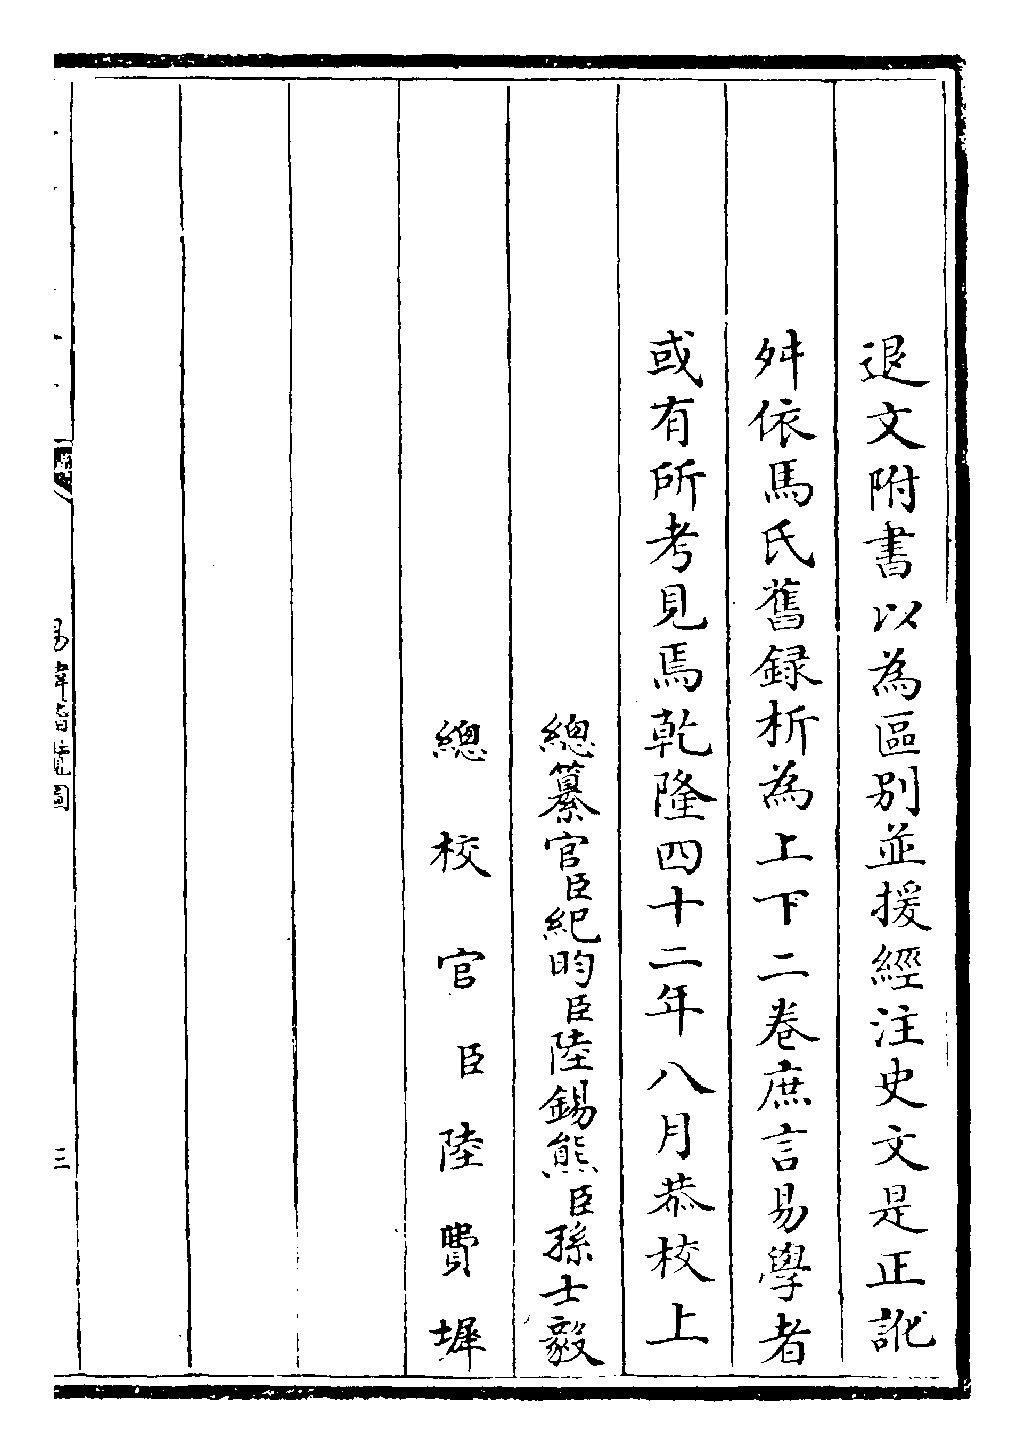 退文附書以為區别並援經注史文是正訛
舛依馬氏舊録析為上下二卷庶言易學者
或有所考見焉乾隆四十二年八月恭校上
總纂官臣紀昀臣陸錫熊臣孫士毅
總校官臣陸費墀
易緯稽覽圖
三